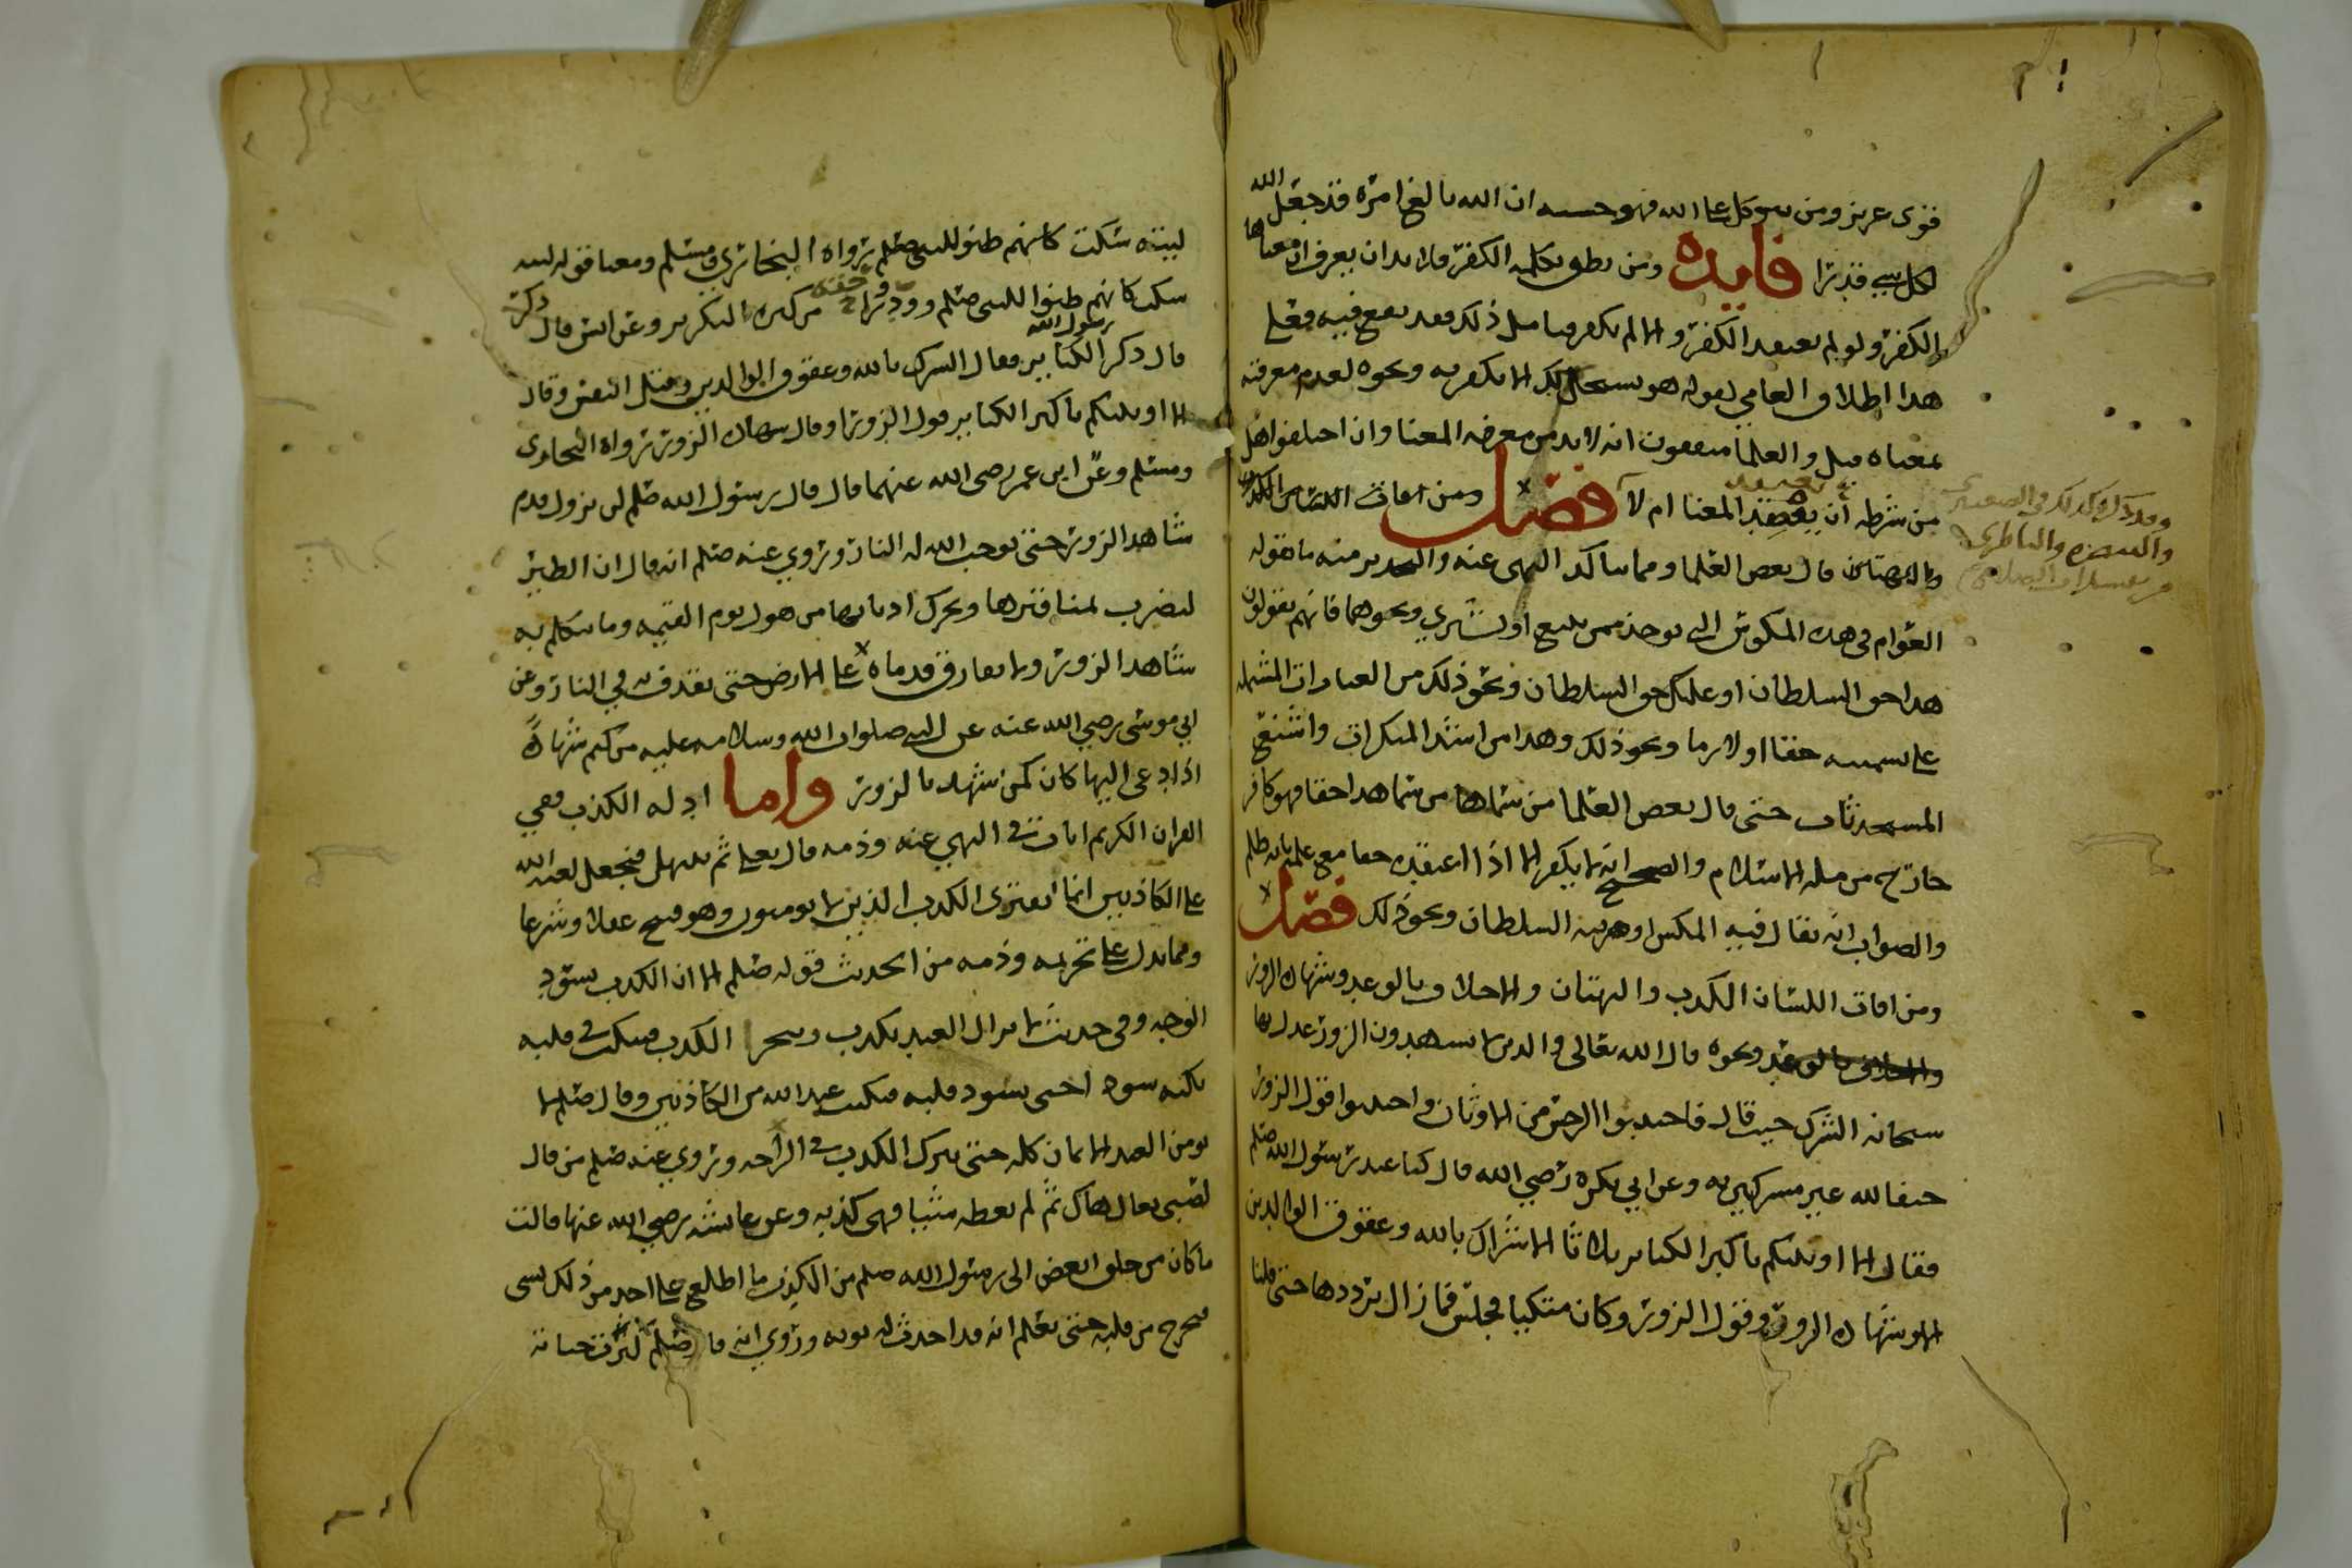 قوى عزيز ومن يتوكل على الله فهو حسبه ان الله بالغ امره قد جعل الله
لكل شي قدرا فايده ومن نطق بكلمه الكفر فلا بد ان يعرف ان معناها
الكفر ولو لم يعتقد الكفر والا لم يكفر مثل ذلك فقد يقع فيه فعلى
هذا اطلاق العامي لقوله هو يستحل لك لا يكفر به ونحوه لعدم معرفته
بمعناه قيل والعلما متفقون انه لا بد من معرفه المعنا وان اختلفوا هل
من شرطه ان يعتقد المعنا ام لا فصل ومن افات اللسان الكذب
والبهتان قال بعض العلما ومما يتاكد النهي عنه والتحذير منه ما يقوله
العوام في هذه المكوس التي توخذ ممن يبيع او يشري ونحوهما فانهم يقولون
هذا حق السلطان او عليك حق السلطان ونحو ذلك من العبارات المشتمله
على تسميته حقا او لازما ونحو ذلك وهذا من اشد المنكرات واشنع
المستحدثات حتى قال بعض العلما من سماها من سما هذا حقا فهو كافر
خارج من مله الاسلام والصحيح انه لا يكفر الا اذا اعتقده حقا مع علمه بانه ظلم
والصواب ان يقال فيه المكس او ضريبه السلطان ونحو ذلك فصل
ومن افات اللسان الكذب والبهتان والاخلاف بالوعد وشهاده الزور
ونحوه قال الله تعالى والذين لا يشهدون الزور عدل بها
سبحانه الشرك حيث قال فاجتنبوا الرجس من الاوثان واجتنبوا قول الزور
حنفا لله غير مشركين به وعن ابي بكره رضي الله قال كنا عند رسول الله صلم
فقال الا انبئكم باكبر الكباير ثلاثا الاشراك بالله وعقوق الوالدين
الا وشهاده الزور وقول الزور وكان متكيا فجلس فما زال يرددها حتى قلنا
ليته سكت كانهم ظنوا للنبي صلم رواه البخاري ومسلم ومعنا قوله ليته
سكت كانهم ظنوا للنبي صلم وودوا حقه من كثره التكرير وعن انس قال ذكر
رسول الله
قال ذكر الكباير فقال الشرك بالله وعقوق الوالدين وقتل النفس وقال
الا انبئكم باكبر الكباير قول الزور او قال شهاده الزور رواه البخاري
ومسلم وعن ابن عمر رضى الله عنهما قال قال رسول الله صلم لن يزول قدم
شاهد الزور حتى يوجب الله له النار وروي عنه صلم انه قال ان الطير
لتضرب بمناقيرها وتحرك اذنابها من هول يوم القيمه وما يتكلم به
شاهد الزور ولا يفارق قدماه على الارض حتى يقذف به في النار وعن
ابي موسى رضي الله عنه عن النبي صلوات الله وسلامه عليه من كتم شهاده
اذا دعي اليها كان كمن شهد بالزور واما ادله الكذب ففي
القران الكريم ايات في النهي عنه وذمه قال تعالى ثم نبتهل فنجعل لعنه الله
على الكاذبين انما يفتري الكذب الذين لا يومنون وهو قبيح عقلا وشرعا
ومما يدل على تحريمه وذمه من الحديث قوله صلم الا ان الكذب يسود
الوجه وفي حديث لا يزال العبد يكذب ويتحرا الكذب فينكت في قلبه
نكته سودا حتى يسود قلبه فيكتب عند الله من الكاذبين وقال صلم لا
يومن العبد الايمان كله حتى يترك الكذب في المزاحه وروي عنه صلم من قال
لصبي تعال هاك ثم لم يعطه شيا فهي كذبه وعن عايشه رضي الله عنها قالت
ما كان من خلق ابغض الى رسول الله صلم من الكذب ما اطلع على احد من ذلك بشي
فيخرج من قلبه حتى يعلم انه قد احدث له توبه وروي انه قال صلم كبرت خيانه